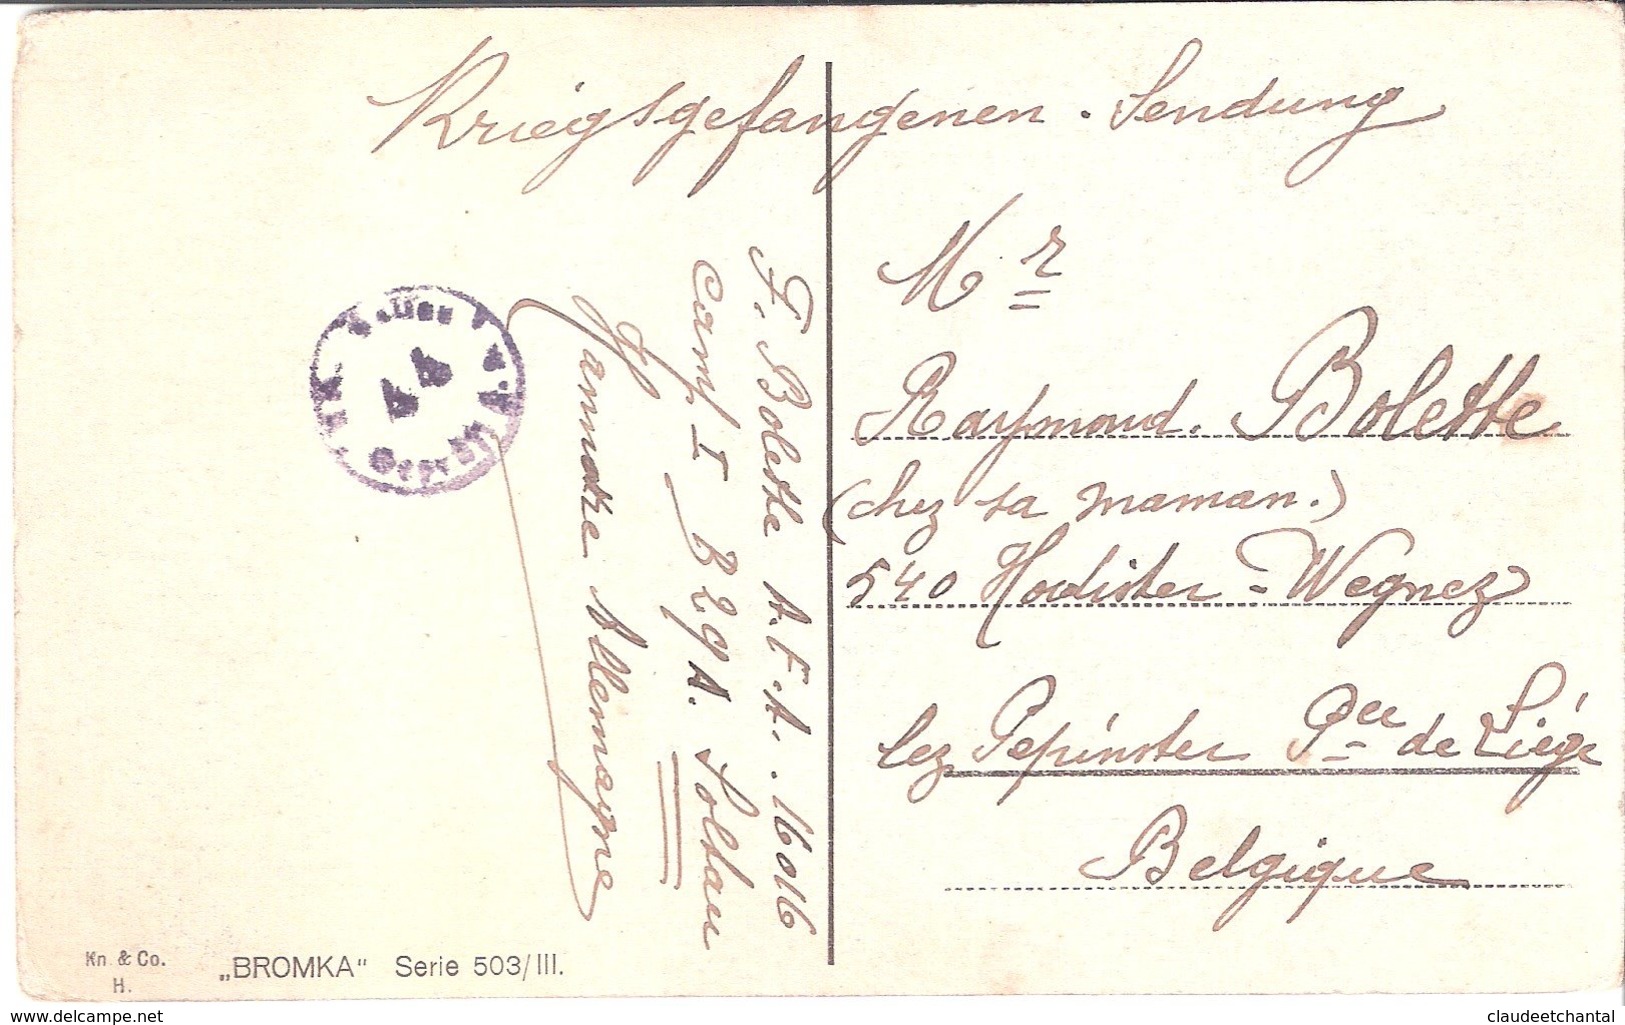 Kriegsgefangenen - Sendung
Mr
Raymond. Bolette
(chez sa maman.)
540 Hodister - Wegnez
lez Pepinster Pce de Liége
Belgique
F. Bolette A.F.A. 16016
Camp I B 29 A. Soltau
Hannovre Allemagne
Kn & Co.
H.
„BROMKA" Serie 503/III.
www.delcampe.net
claudeetchantal